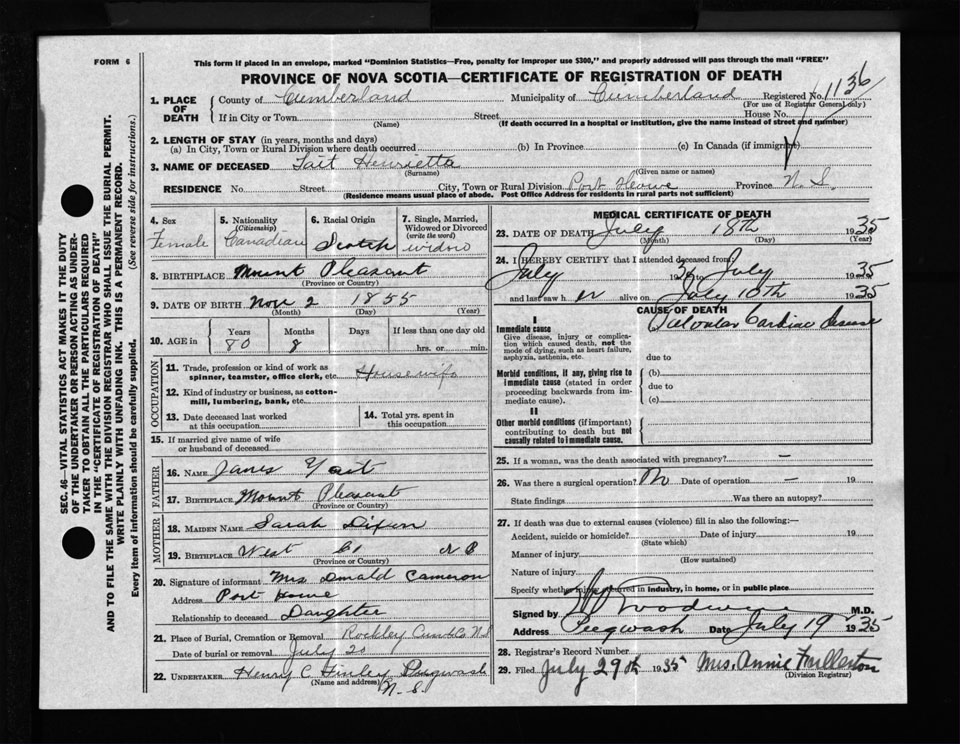 FORM 6
This form if placed in an envelope, marked "Dominion Statistics—Free, penalty for improper use $300," and properly addressed will pass through the mail "FREE"
PROVINCE OF NOVA SCOTIA—CERTIFICATE OF REGISTRATION OF DEATH
1. PLACE OF DEATH
County of Cumberland Municipality of Cumberland Registered No. 1136
(For use of Registrar General only)
If in City or Town Street House No.
(Name) (If death occurred in a hospital or institution, give the name instead of street and number)
2. LENGTH OF STAY (in years, months and days)
(a) In City, Town or Rural Division where death occurred (b) In Province (c) In Canada (if immigrant)
3. NAME OF DECEASED Tait Henrietta
(Surname) (Given name or names)
RESIDENCE No. Street City, Town or Rural Division Port Howe Province N. S.
(Residence means usual place of abode. Post Office Address for residents in rural parts not sufficient)
4. Sex
Female
5. Nationality
(Citizenship)
Canadian
6. Racial Origin
Scotch
7. Single, Married, Widowed or Divorced
(write the word)
widow
8. BIRTHPLACE Mount Pleasant
(Province or Country)
9. DATE OF BIRTH Nov 2 1855
(Month) (Day) (Year)
10. AGE in
Years Months Days If less than one day old
80 8 hrs. or min.
OCCUPATION
11. Trade, profession or kind of work as spinner, teamster, office clerk, etc. Housewife
12. Kind of industry or business, as cotton-mill, lumbering, bank, etc.
13. Date deceased last worked at this occupation
14. Total yrs. spent in this occupation
15. If married give name of wife or husband of deceased
FATHER
16. NAME James Tait
17. BIRTHPLACE Mount Pleasant
(Province or Country)
MOTHER
18. MAIDEN NAME Sarah Dixon
19. BIRTHPLACE West Co N B
(Province or Country)
20. Signature of informant Mrs. Donald Cameron
Address Port Howe
Relationship to deceased Daughter
21. Place of Burial, Cremation or Removal Rockley Cumb. Co. N.S
Date of burial or removal July 20
22. UNDERTAKER Henry C Finley Pugwash
(Name and address) N. S.
MEDICAL CERTIFICATE OF DEATH
23. DATE OF DEATH July 18th 1935
(Month) (Day) (Year)
24. I HEREBY CERTIFY that I attended deceased from
July to July 1935
and last saw her alive on July 10th 1935
CAUSE OF DEATH
I
Immediate cause Valvular Cardiac disease
Give disease, injury or complication which caused death, not the mode of dying, such as heart failure, asphyxia, asthenia, etc.
due to
Morbid conditions, if any, giving rise to immediate cause (stated in order proceeding backwards from immediate cause).
(b)
due to
(c)
II
Other morbid conditions (if important) contributing to death but not causally related to immediate cause.
25. If a woman, was the death associated with pregnancy? —
26. Was there a surgical operation? No Date of operation — 19
State findings Was there an autopsy?
27. If death was due to external causes (violence) fill in also the following:—
Accident, suicide or homicide? Date of injury 19
(State which)
Manner of injury
(How sustained)
Nature of injury
Specify whether injury occurred in industry, in home, or in public place
Signed by M.D.
Address Pugwash Date July 19 1935
28. Registrar's Record Number
29. Filed July 29th 1935 Mrs. Annie Fullerton
(Division Registrar)
SEC. 46—VITAL STATISTICS ACT MAKES IT THE DUTY
OF THE UNDERTAKER OR PERSON ACTING AS UNDER-
TAKER TO OBTAIN ALL THE PARTICULARS REQUIRED
IN THE "CERTIFICATE OF REGISTRATION OF DEATH"
AND TO FILE THE SAME WITH THE DIVISION REGISTRAR WHO SHALL ISSUE THE BURIAL PERMIT.
WRITE PLAINLY WITH UNFADING INK. THIS IS A PERMANENT RECORD.
Every item of information should be carefully supplied. (See reverse side for instructions.)